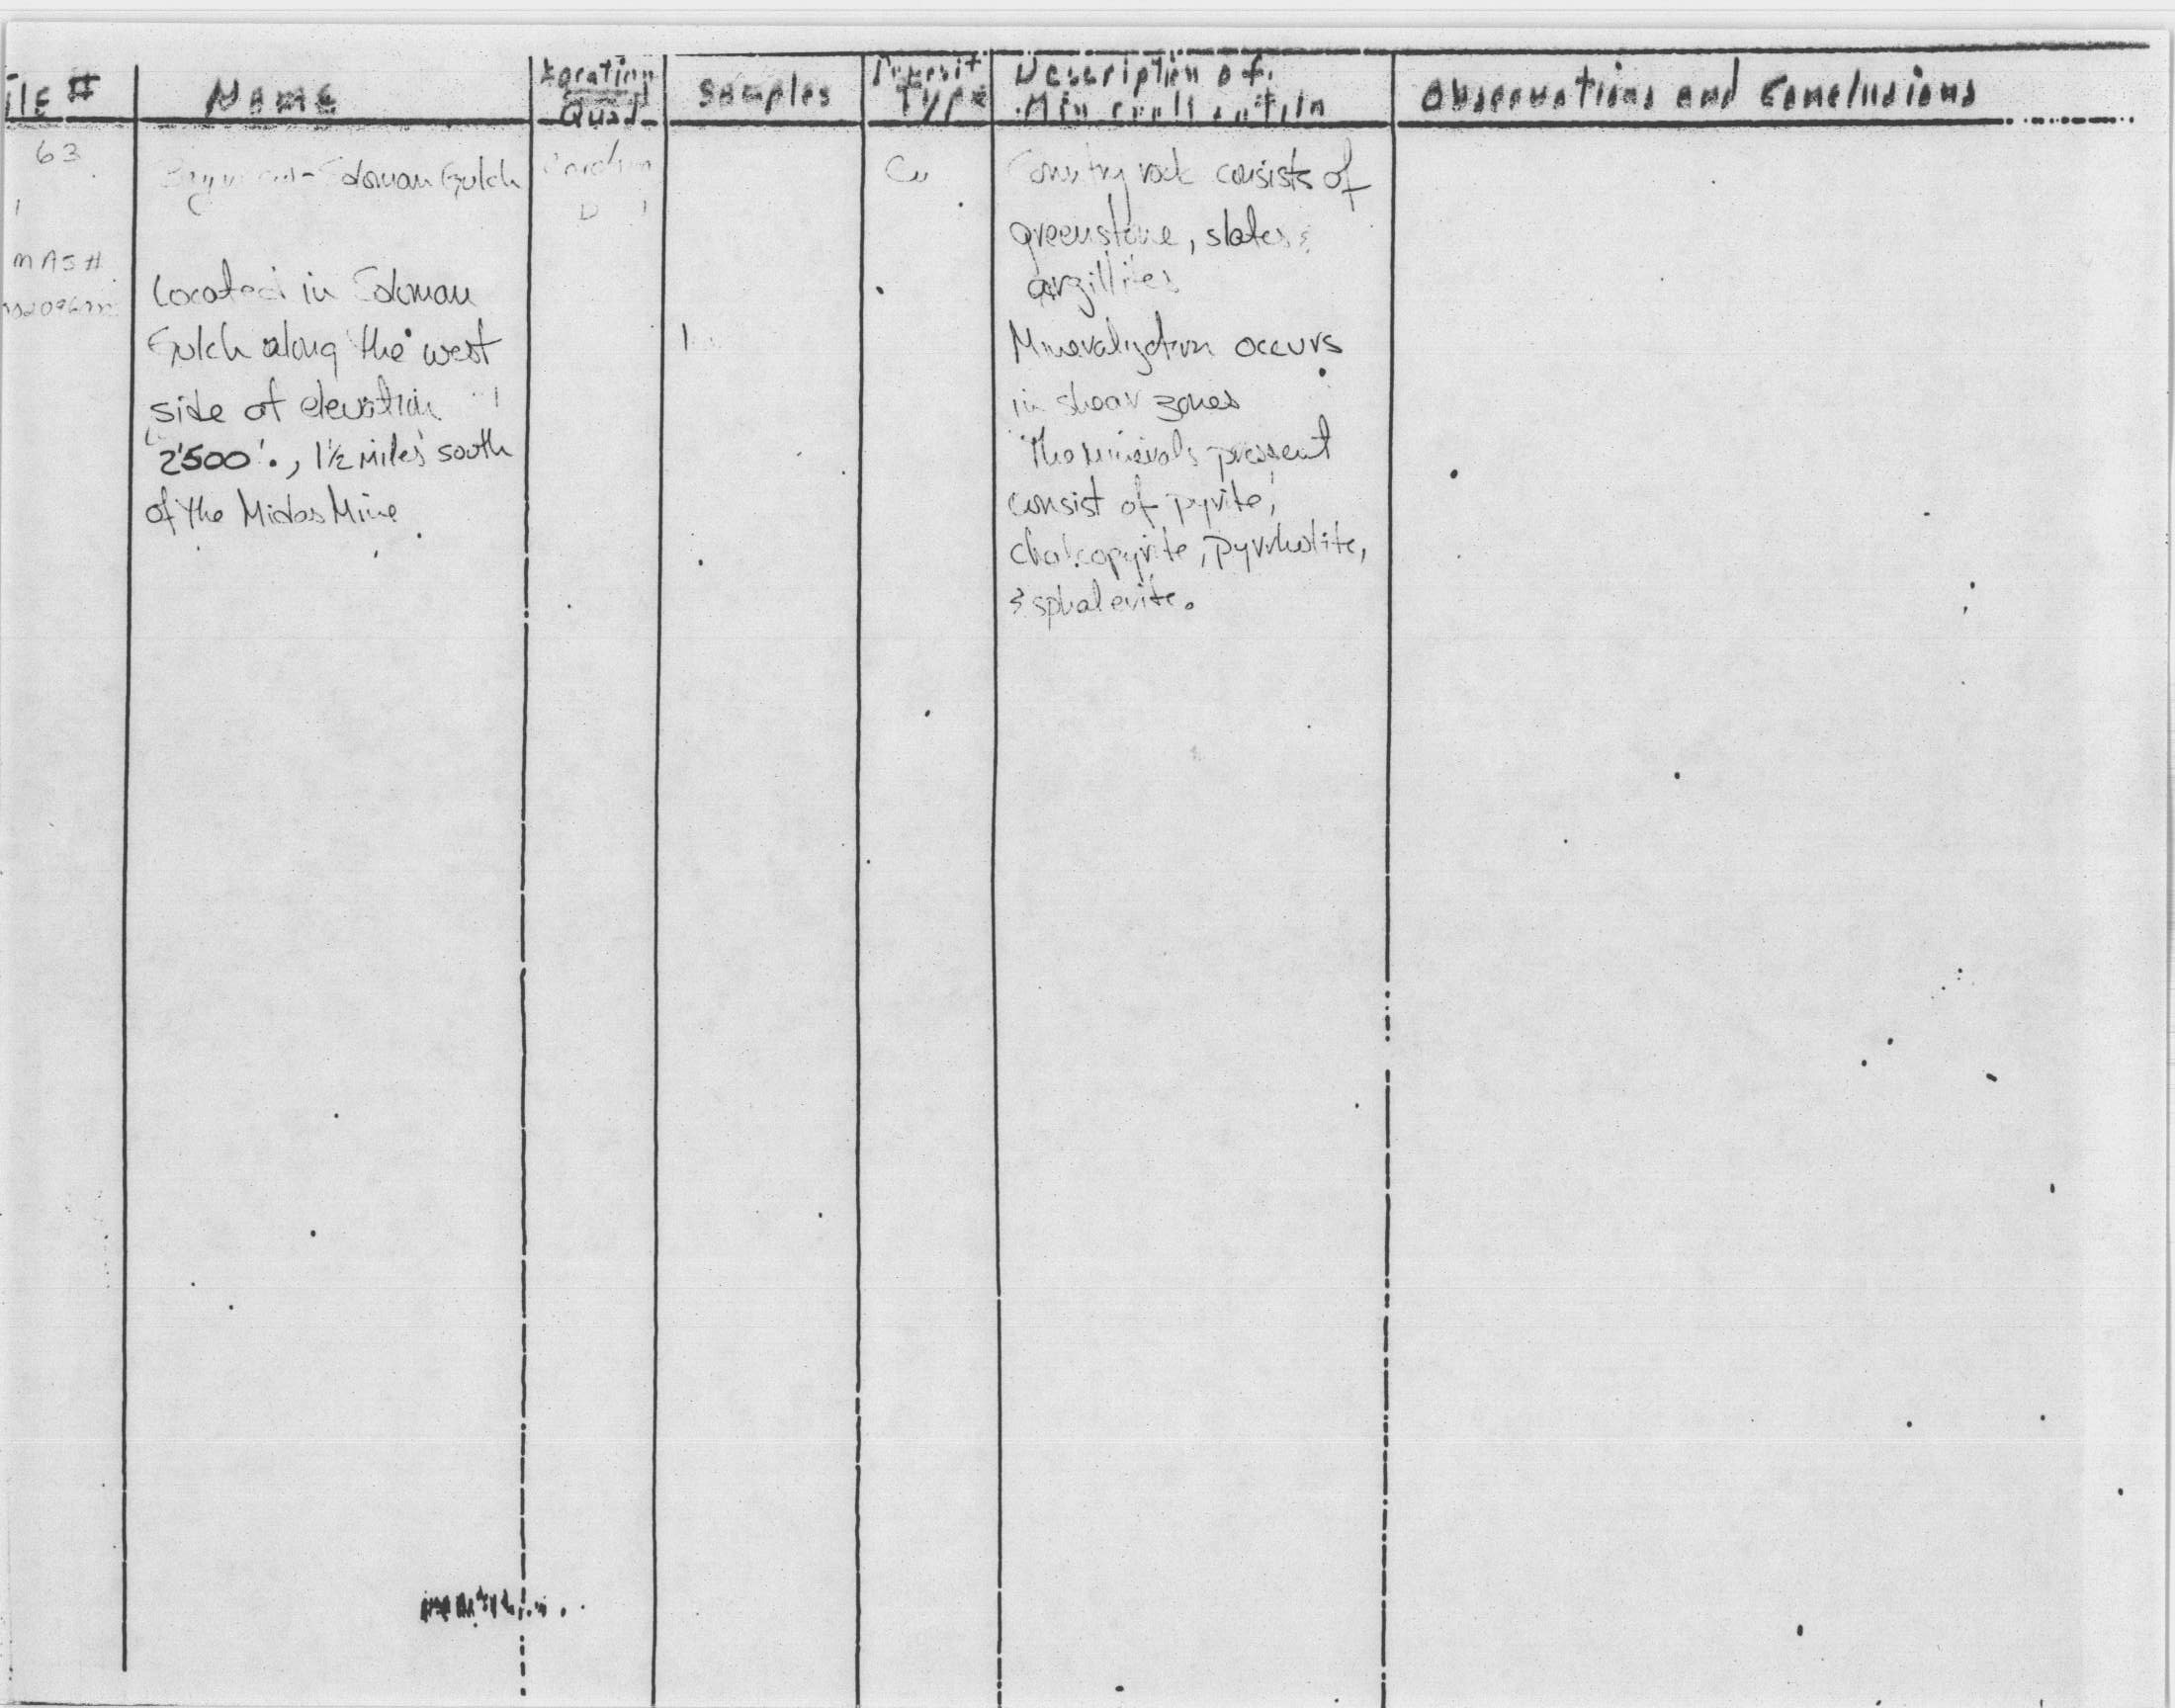 ile #
Name
Location
Quad
Samples
Deposit
Type
Description of
Mineralization
Observations and Conclusions
63
Soloman Gulch
Cordova
D
Cu
MAS #
Located in Soloman
Gulch along the west
side of elevation
2500'., 1½ miles south
of the Midas Mine
1
Country rock consists of
greenstone, slates &
argillites
Mineralization occurs
in shear zones
The minerals present
consist of pyrite,
chalcopyrite, pyrrhotite,
& sphalerite.